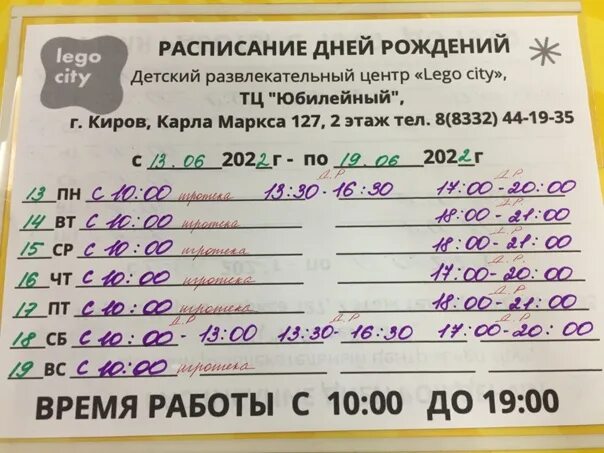 lego
city
РАСПИСАНИЕ ДНЕЙ РОЖДЕНИЙ
Детский развлекательный центр «Lego city»,
ТЦ "Юбилейный",
г. Киров, Карла Маркса 127, 2 этаж тел. 8(8332) 44-19-35
с 13.06 2022г - по 19.06 2022г
Д.Р. Д.Р.
13 ПН с 10:00 игротека 13:30-16:30 17:00-20:00
Д.Р.
14 ВТ с 10:00 игротека 18:00-21:00
Д.Р.
15 СР с 10:00 игротека 18:00-21:00
Д.Р.
16 ЧТ с 10:00 игротека 17:00-20:00
Д.Р.
17 ПТ с 10:00 игротека 18:00-21:00
Д.Р. Д.Р. Д.Р.
18 СБ с 10:00 - 13:00 13:30-16:30 17:00-20:00
19 ВС с 10:00 игротека
ВРЕМЯ РАБОТЫ С 10:00 ДО 19:00